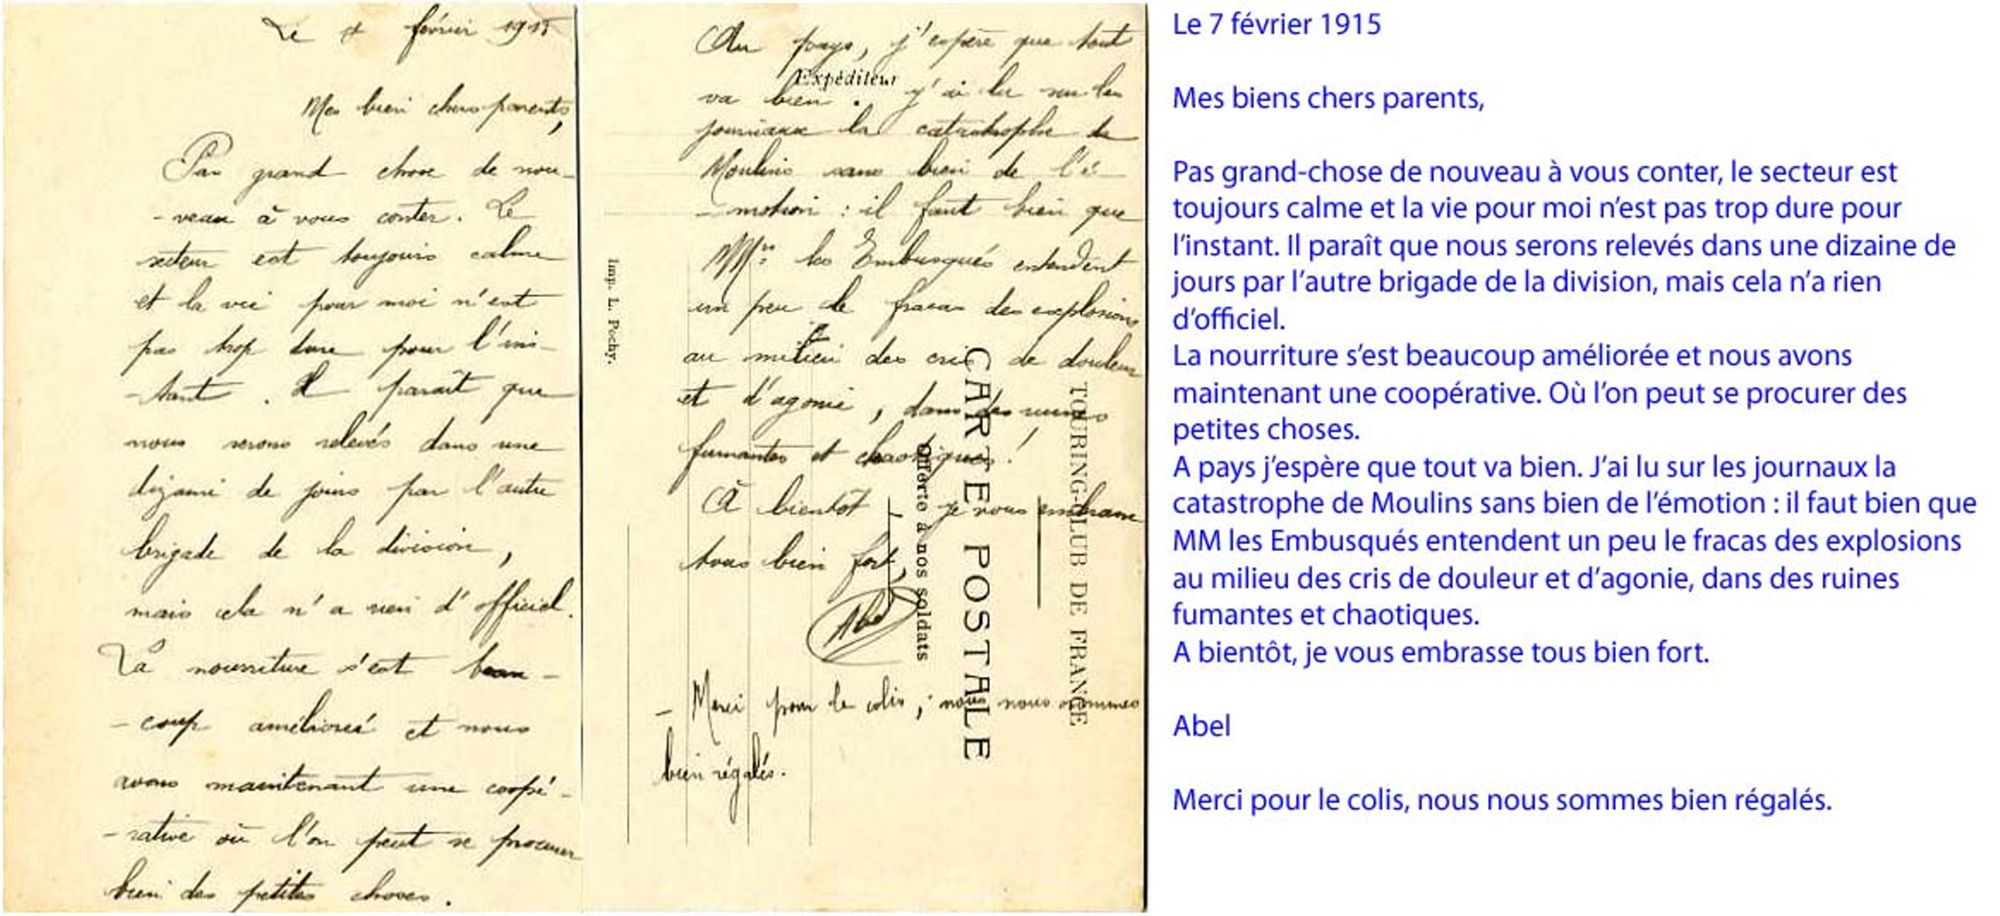 Le 7 février 1915
Mes bien chers parents,
Pas grand chose de nou-
-veau à vous conter. Le
secteur est toujours calme
et la vie pour moi n'est
pas trop dure pour l'ins-
-tant. Il paraît que
nous serons relevés dans une
dizaine de jours par l'autre
brigade de la division,
mais cela n'a rien d'officiel.
La nourriture s'est beau-
-coup améliorée et nous
avons maintenant une coopé-
-rative où l'on peut se procurer
bien des petites choses.
Au pays, j'espère que tout
va bien. J'ai lu sur les
journaux la catastrophe de
Moulins sans bien de l'é-
-motion : il faut bien que
MMrs les Embusqués entendent
un peu le fracas des explosions
au milieu des cris de douleur
et d'agonie, dans des ruines
fumantes et chaotiques !
À bientôt je vous embrasse
tous bien fort,
Abel
- Merci pour le colis ; nous nous sommes
bien régalés.
Expéditeur
Imp. L. Pochy.
TOURING-CLUB DE FRANCE
CARTE POSTALE
Offerte à nos soldats
Le 7 février 1915
Mes biens chers parents,
Pas grand-chose de nouveau à vous conter, le secteur est
toujours calme et la vie pour moi n'est pas trop dure pour
l'instant. Il paraît que nous serons relevés dans une dizaine de
jours par l'autre brigade de la division, mais cela n'a rien
d'officiel.
La nourriture s'est beaucoup améliorée et nous avons
maintenant une coopérative. Où l'on peut se procurer des
petites choses.
A pays j'espère que tout va bien. J'ai lu sur les journaux la
catastrophe de Moulins sans bien de l'émotion : il faut bien que
MM les Embusqués entendent un peu le fracas des explosions
au milieu des cris de douleur et d'agonie, dans des ruines
fumantes et chaotiques.
A bientôt, je vous embrasse tous bien fort.
Abel
Merci pour le colis, nous nous sommes bien régalés.